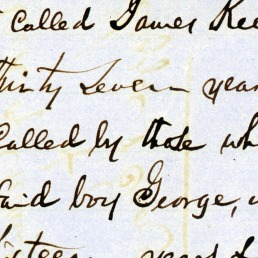 called James Kee
Thirty Seven year
Called by those wh
Said boy George,